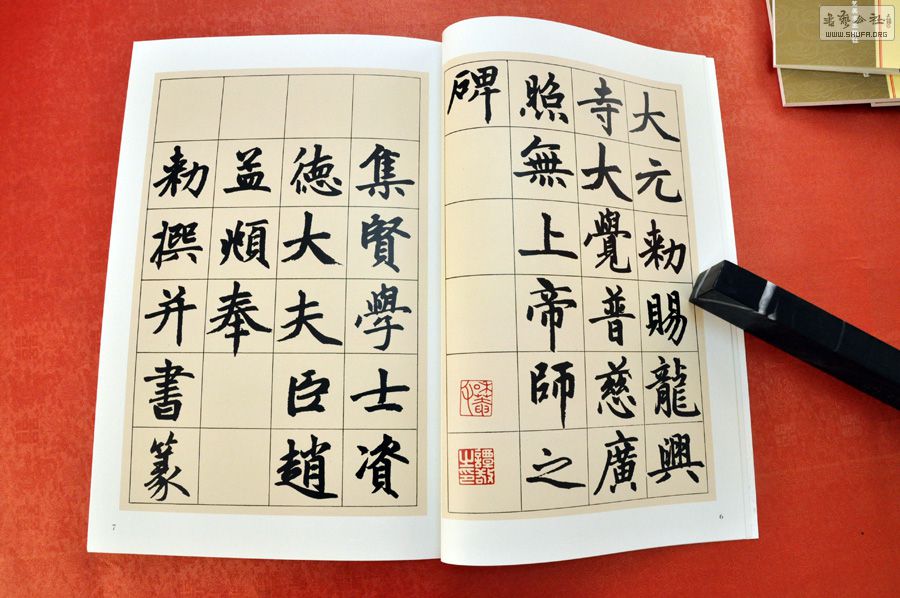 大元敕賜龍興
寺大覺普慈廣
照無上帝師之
碑
集賢學士資
德大夫臣趙
孟頫奉
敕撰并書篆
6
7
WWW.SHUFA.ORG